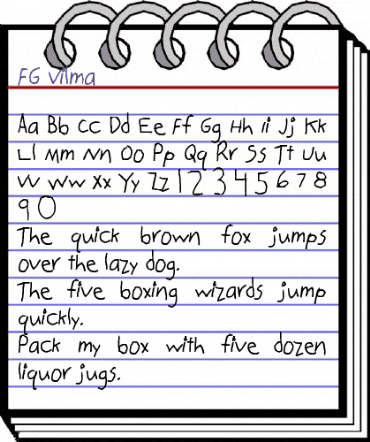 FG Vilma
Aa Bb Cc Dd Ee Ff Gg Hh Ii Jj Kk
Ll Mm Nn Oo Pp Qq Rr Ss Tt Uu
Vv Ww Xx Yy Zz 1 2 3 4 5 6 7 8
9 0
The quick brown fox jumps
over the lazy dog.
The five boxing wizards jump
quickly.
Pack my box with five dozen
liquor jugs.